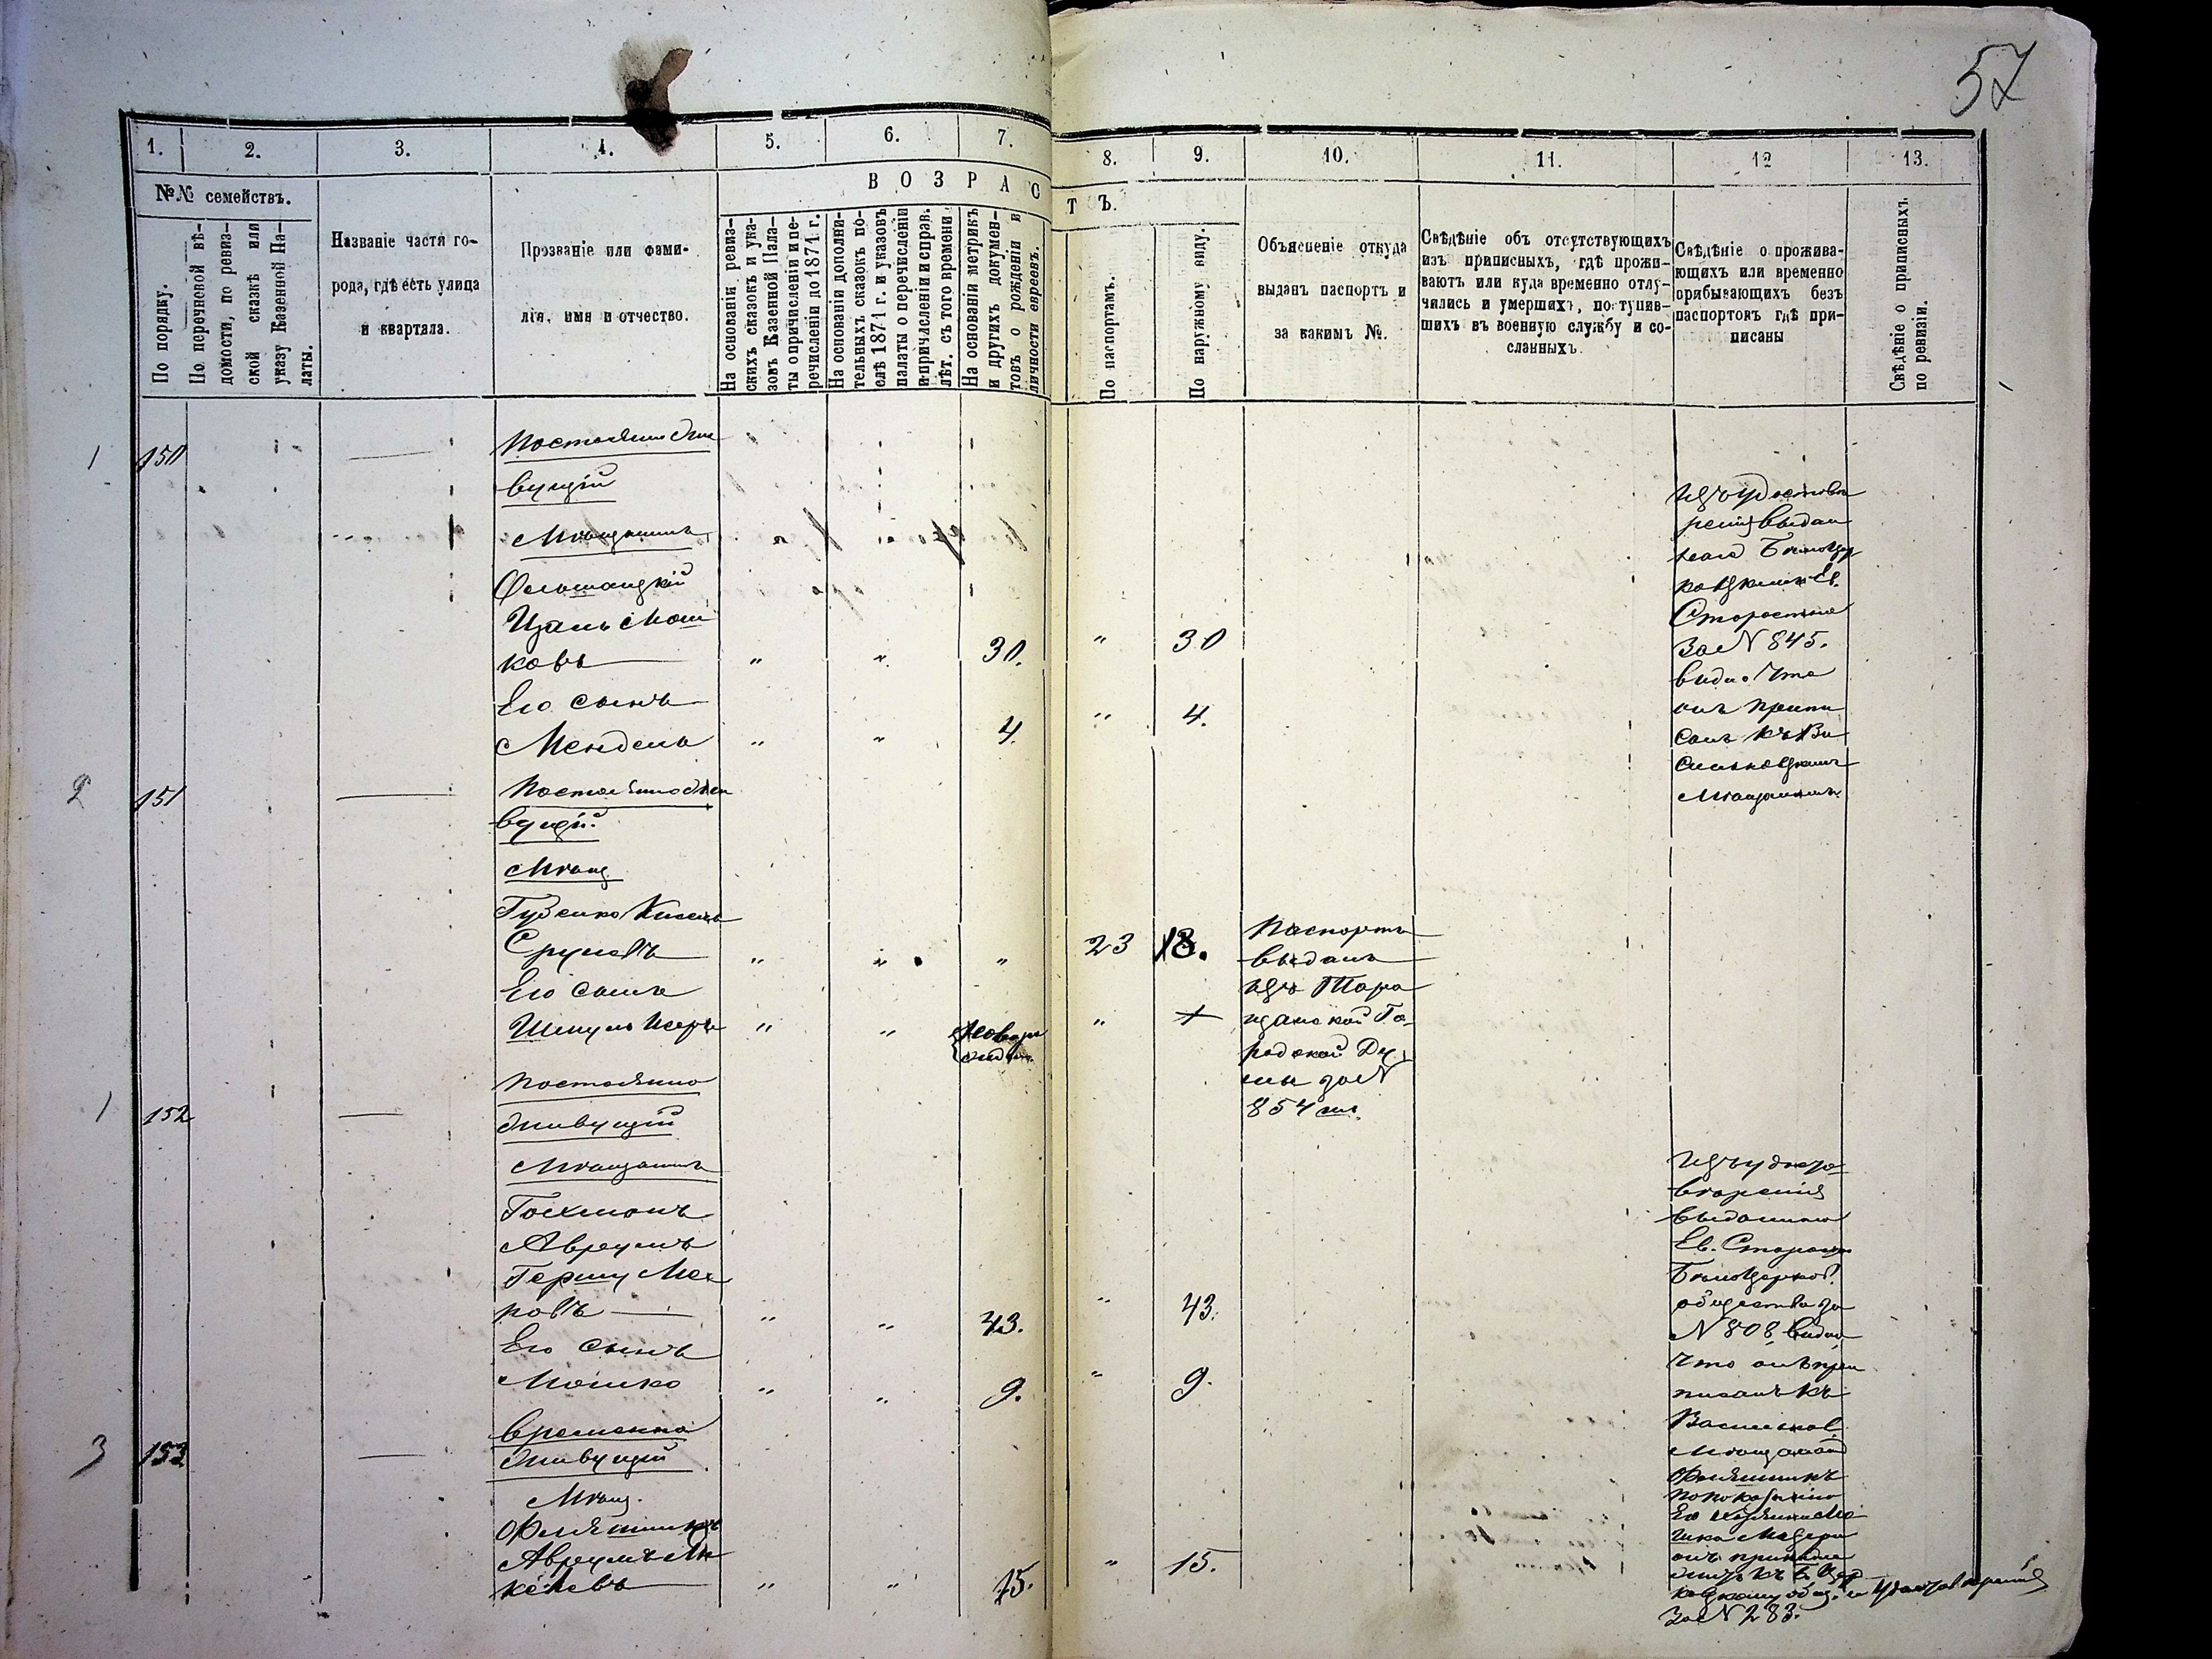 57
1.
2.
3.
4.
5.
6.
7.
8.
9.
10.
11.
12
13.
№№ семействъ.
По порядку.
По перечневой вѣ-
домости, по ревиз-
ской сказкѣ или
указу Казенной Па-
латы.
Названіе части го-
рода, гдѣ есть улица
и квартала.
Прозваніе или фами-
лія, имя и отчество.
ВОЗРАСТЪ.
На основаніи ревиз-
скихъ сказокъ и ука-
зовъ Казенной Пала-
ты о причисленіи и пе-
речисленіи до 1871 г.
На основаніи дополни-
тельныхъ сказокъ по-
слѣ 1871 г. и указовъ
палаты о перечисленіи
и причисленіи и справ.
лѣт. съ того времени
На основаніи метрикъ
и другихъ докумен-
товъ о рожденіи и
личности евреевъ.
По паспортамъ.
По наружному виду.
Объясненіе откуда
выданъ паспортъ и
за какимъ №.
Свѣдѣніе объ отсутствующихъ
изъ приписныхъ, гдѣ прожи-
ваютъ или куда временно отлу-
чились и умершихъ, поступив-
шихъ въ военную службу и со-
сланныхъ.
Свѣдѣніе о прожива-
ющихъ или временно
прибывающихъ безъ
паспортовъ гдѣ при-
писаны
Свѣдѣніе о приписныхъ
по ревизіи.
1
150
Постоянно жи
вущій
Мѣщанинъ
Ольшанскій
Мош
ковъ
" " 30. " 30
Его сынъ
Мендель " " 4. " 4.
Изъ удостовѣ
ренія выдан
наго Бѣлоцер
ковскимъ Ев.
Старостою
За N 845.
видно что
онъ припи
санъ къ Ва
сильковскимъ
Мѣщанамъ.
2
151
Постоянно жи
вущій
Мѣщ.
Гузенко
Сруловъ " " " 23 18.
Его сынъ
" " Новоро
жден. "
Паспортъ
выданъ
изъ Тара
щанской Го
родской Ду
мы за N
854
1
152
Постоянно
живущій
Мѣщанинъ
Гохманъ
Аврумъ
Гершу Мее
ровъ " " 43. " 43.
Его сынъ
Мошко " " 9. " 9.
Изъ удосто
вѣренія
выданнаго
Ев. Старост
Бѣлоцерков.
общества за
N 808 видно
что онъ при
писанъ къ
Васильков.
Мѣщанамъ
3
153
Временно
живущій
Мѣщ.
Аврумъ
" " 15. " 15.
по показанію
онъ принадле
житъ къ Б. Цер
ковскому общ. и удостовѣренія
За N 283.